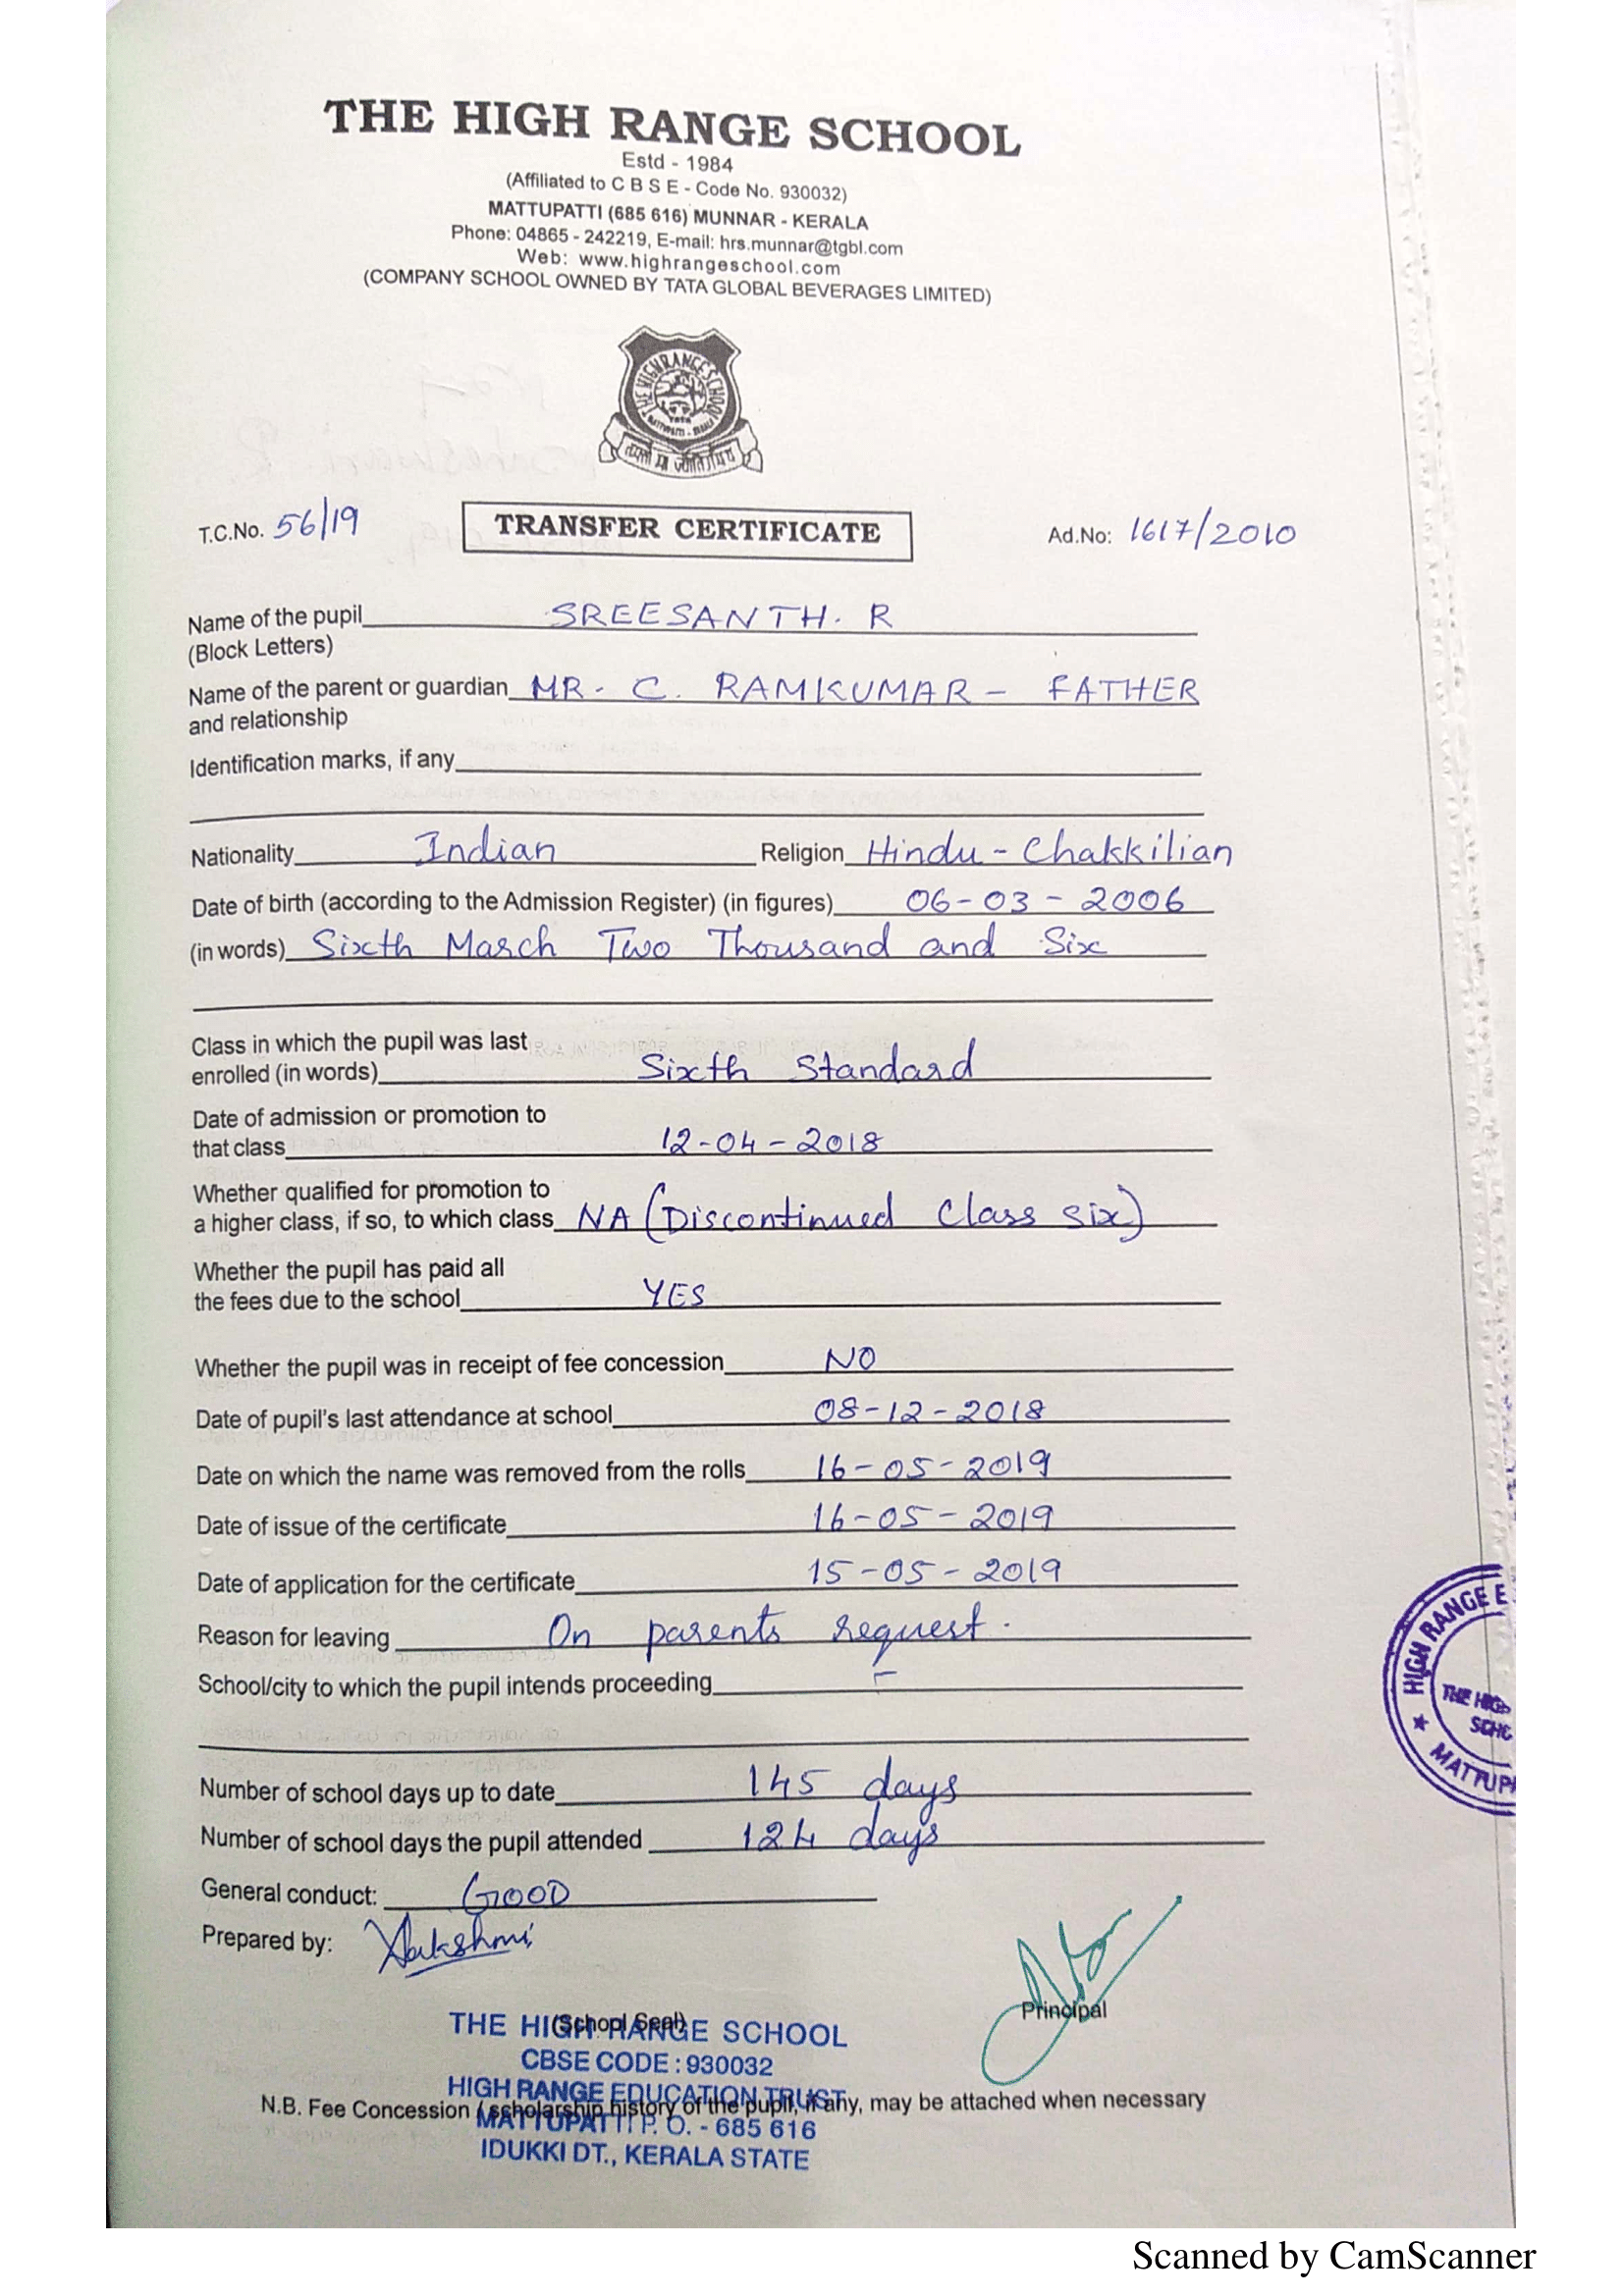 THE HIGH RANGE SCHOOL
Estd - 1984
(Affiliated to C B S E - Code No. 930032)
MATTUPATTI (685 616) MUNNAR - KERALA
Phone: 04865 - 242219, E-mail: hrs.munnar@tgbl.com
Web: www.highrangeschool.com
(COMPANY SCHOOL OWNED BY TATA GLOBAL BEVERAGES LIMITED)
THE HIGH RANGE SCHOOL
तमसो मा ज्योतिर्गमय
T.C.No. 56/19 TRANSFER CERTIFICATE Ad.No: 1617/2010
Name of the pupil SREESANTH. R
(Block Letters)
Name of the parent or guardian MR. C. RAMKUMAR - FATHER
and relationship
Identification marks, if any
Nationality Indian Religion Hindu - Chakkilian
Date of birth (according to the Admission Register) (in figures) 06-03-2006
(in words) Sixth March Two Thousand and Six
Class in which the pupil was last
enrolled (in words) Sixth Standard
Date of admission or promotion to
that class 12-04-2018
Whether qualified for promotion to
a higher class, if so, to which class NA (Discontinued Class six)
Whether the pupil has paid all
the fees due to the school YES
Whether the pupil was in receipt of fee concession NO
Date of pupil's last attendance at school 08-12-2018
Date on which the name was removed from the rolls 16-05-2019
Date of issue of the certificate 16-05-2019
Date of application for the certificate 15-05-2019
Reason for leaving On parents request.
School/city to which the pupil intends proceeding -
HIGH RANGE E
THE HIG
SCHO
MATTUP
Number of school days up to date 145 days
Number of school days the pupil attended 124 days
General conduct: GOOD
Prepared by:
Principal
(School Seal)
THE HIGH RANGE SCHOOL
CBSE CODE : 930032
HIGH RANGE EDUCATION TRUST
N.B. Fee Concession / scholarship history of the pupil, if any, may be attached when necessary
MATTUPATTI P. O. - 685 616
IDUKKI DT., KERALA STATE
Scanned by CamScanner